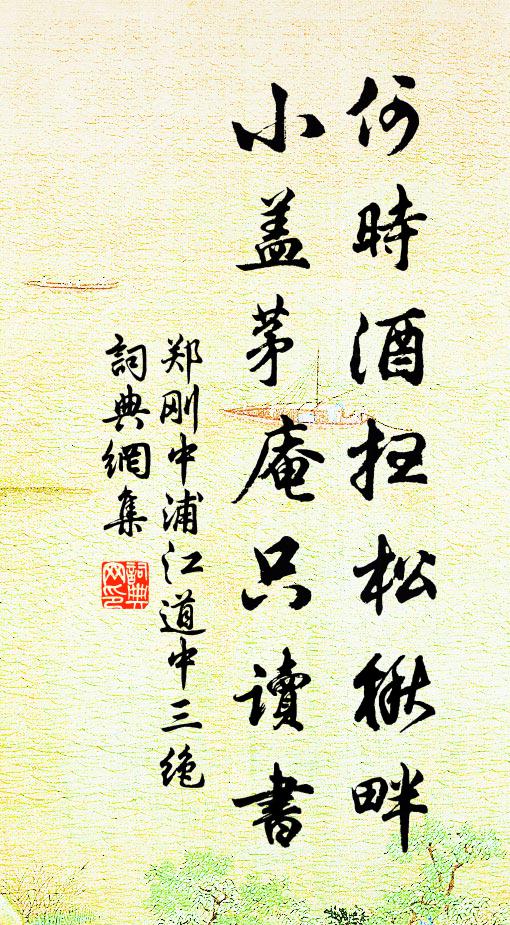 何時酒扫松楸畔
小盖茅庵只讀書
郑刚中浦江道中三绝
詞典網集
詞典
网印